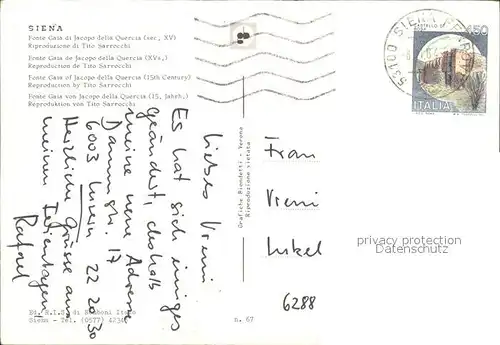 SIENA
Fonte Gaia di Jacopo della Quercia (sec. XV)
Riproduzione di Tito Sarrocchi
Fonte Gaia de Jacopo della Quercia (XVs.)
Reproduction de Tito Sarrocchi
Fonte Gaia of Jacopo della Quercia (15th Century)
Reproduction by Tito Sarrocchi
Fonte Gaia von Jacopo della Quercia (15. Jahrh.)
Reproduktion von Tito Sarrocchi
Liebes Vreni
Es hat sich einiges
geändert, deshalb
meine neue Adresse
17
6003 Luzern 22 20 30
Herzliche Grüsse aus
meinen Ferientagen
Rafael
Ed. di Italo
Siena - Tel. (0577)
n. 67
Grafiche Biondetti - Verona
Riproduzione vietata
53100 SIENA
450
ITALIA
Frau
Vreni
6288
privacy protection
Datenschutz